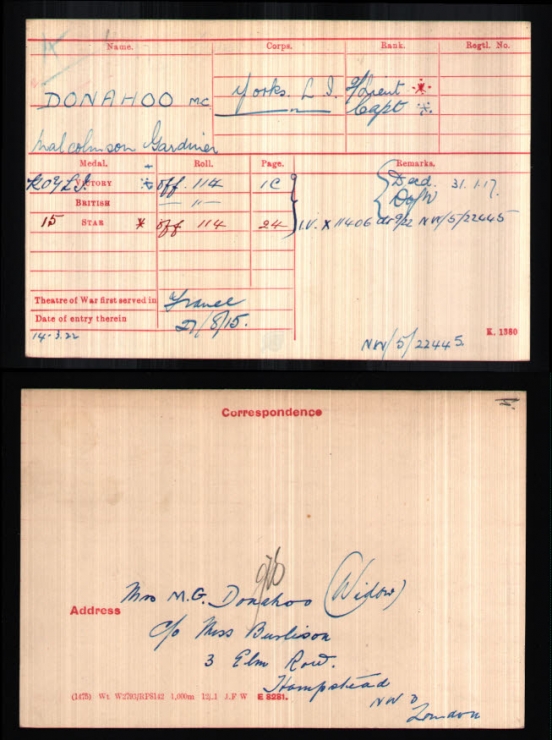 Name. Corps. Rank. Regtl. No.
DONAHOO MC Yorks. L I. 2/Lieut *
Capt *
Malcolmson Gardiner
Medal. Roll. Page. Remarks.
KOYLI VICTORY * Off. 114 1C Dead. 31.1.17.
BRITISH — " — DofW
15 STAR * Off 114 24 I.V. X 11406 NW/5/22445
Theatre of War first served in France
Date of entry therein 27/8/15.
14-3.22
NW/5/22445 K. 1380
Correspondence
Mrs M.G. Donahoo (Widow)
Address
c/o Miss Burlison
3 Elm Row.
Hampstead
(1475) Wt. W2793/RP8142 1,000m 12/.1 J.F W E 8281.
NW 3
London